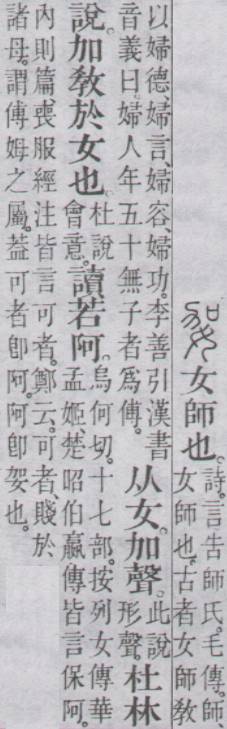 女師也。詩。言告師氏。毛傳。師、
女師也。古者女師教
以婦德婦言、婦容、婦功。李善引漢書
音義曰。婦人年五十無子者爲傅。
从女。加聲。此說
形聲。
杜林
說。加教於女也。杜說
會意。
讀若阿。烏何切。十七部。按列女傳華
孟姬楚昭伯嬴傳皆言保阿。
內則篇、喪服經注皆言可者。鄭云。可者、賤於
諸母。謂傅姆之屬。葢可者卽阿。阿卽妿也。